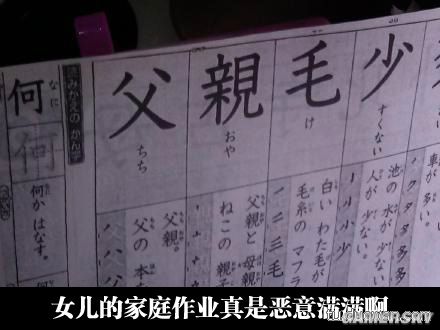 車が多い。
少
すくない
池の水が少な
人が少ない。
毛
け
白い わた毛が
毛糸の マフラ
親
おや
父親と 母親
ねこの 親子
父
ちち
父親。
父の 本
読みかえの かん字
何
なに
何か はなす。
女儿的家庭作业真是恶意满满啊